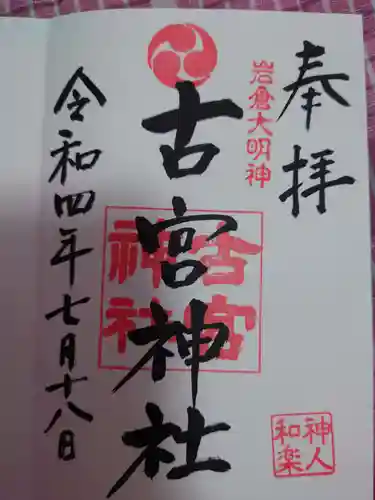 奉拝
岩倉大明神
古宮神社
古宮神社
令和四年七月十八日
神人和楽